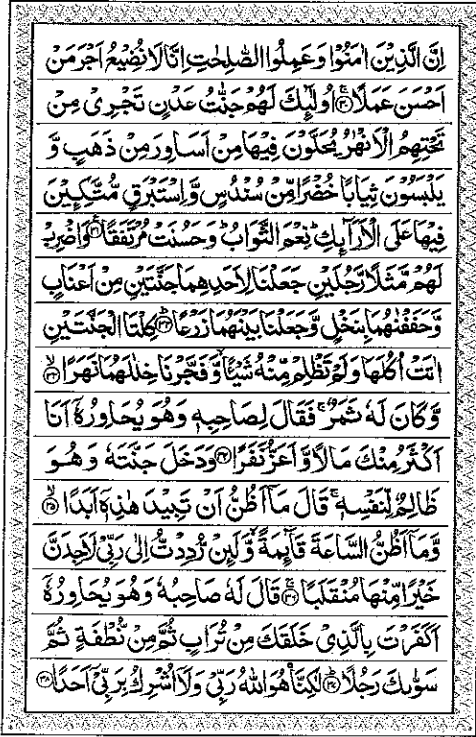 اِنَّ الَّذِيْنَ اٰمَنُوْا وَعَمِلُوا الصّٰلِحٰتِ اِنَّا لَا نُضِيْعُ اَجْرَ مَنْ
اَحْسَنَ عَمَلًا ۚ۝۳۰ اُولٰٓئِكَ لَهُمْ جَنّٰتُ عَدْنٍ تَجْرِيْ مِنْ
تَحْتِهِمُ الْاَنْهٰرُ يُحَلَّوْنَ فِيْهَا مِنْ اَسَاوِرَ مِنْ ذَهَبٍ وَّ
يَلْبَسُوْنَ ثِيَابًا خُضْرًا مِّنْ سُنْدُسٍ وَّاِسْتَبْرَقٍ مُّتَّكِـِٕيْنَ
فِيْهَا عَلَى الْاَرَآئِكِ ؕ نِعْمَ الثَّوَابُ ؕ وَحَسُنَتْ مُرْتَفَقًا ۝۳۱ وَاضْرِبْ
لَهُمْ مَّثَلًا رَّجُلَيْنِ جَعَلْنَا لِاَحَدِهِمَا جَنَّتَيْنِ مِنْ اَعْنَابٍ
وَّحَفَفْنٰهُمَا بِنَخْلٍ وَّجَعَلْنَا بَيْنَهُمَا زَرْعًا ؕ۝۳۲ كِلْتَا الْجَنَّتَيْنِ
اٰتَتْ اُكُلَهَا وَلَمْ تَظْلِمْ مِّنْهُ شَيْـًٔا ۙ وَّفَجَّرْنَا خِلٰلَهُمَا نَهَرًا ۙ۝۳۳
وَّكَانَ لَهٗ ثَمَرٌ ۚ فَقَالَ لِصَاحِبِهٖ وَهُوَ يُحَاوِرُهٗٓ اَنَا
اَكْثَرُ مِنْكَ مَالًا وَّاَعَزُّ نَفَرًا ۝۳۴ وَدَخَلَ جَنَّتَهٗ وَهُوَ
ظَالِمٌ لِّنَفْسِهٖ ۚ قَالَ مَآ اَظُنُّ اَنْ تَبِيْدَ هٰذِهٖٓ اَبَدًا ۙ۝۳۵
وَّمَآ اَظُنُّ السَّاعَةَ قَآئِمَةً ۙ وَّلَئِنْ رُّدِدْتُّ اِلٰى رَبِّيْ لَاَجِدَنَّ
خَيْرًا مِّنْهَا مُنْقَلَبًا ۚ۝۳۶ قَالَ لَهٗ صَاحِبُهٗ وَهُوَ يُحَاوِرُهٗٓ
اَكَفَرْتَ بِالَّذِيْ خَلَقَكَ مِنْ تُرَابٍ ثُمَّ مِنْ نُّطْفَةٍ ثُمَّ
سَوّٰىكَ رَجُلًا ؕ۝۳۷ لٰكِنَّا۠ هُوَ اللّٰهُ رَبِّيْ وَلَآ اُشْرِكُ بِرَبِّيْٓ اَحَدًا ۝۳۸